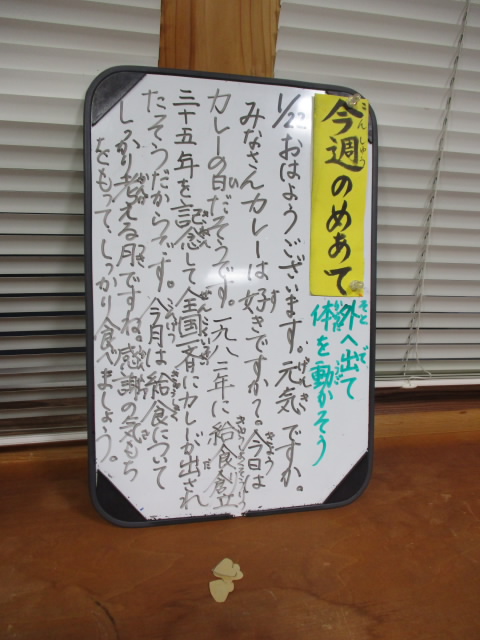 今週のめあて
外へ出て
体を動かそう
1/22 おはようございます。元気ですか。
みなさんカレーは好きですか?今日は
カレーの日だそうです。一九八二年に給食創立
三十五年を記念して全国一斉にカレーが出され
たそうだからです。今月は給食について
しっかり考える月ですね。感謝の気もち
をもってしっかり食べましょう。